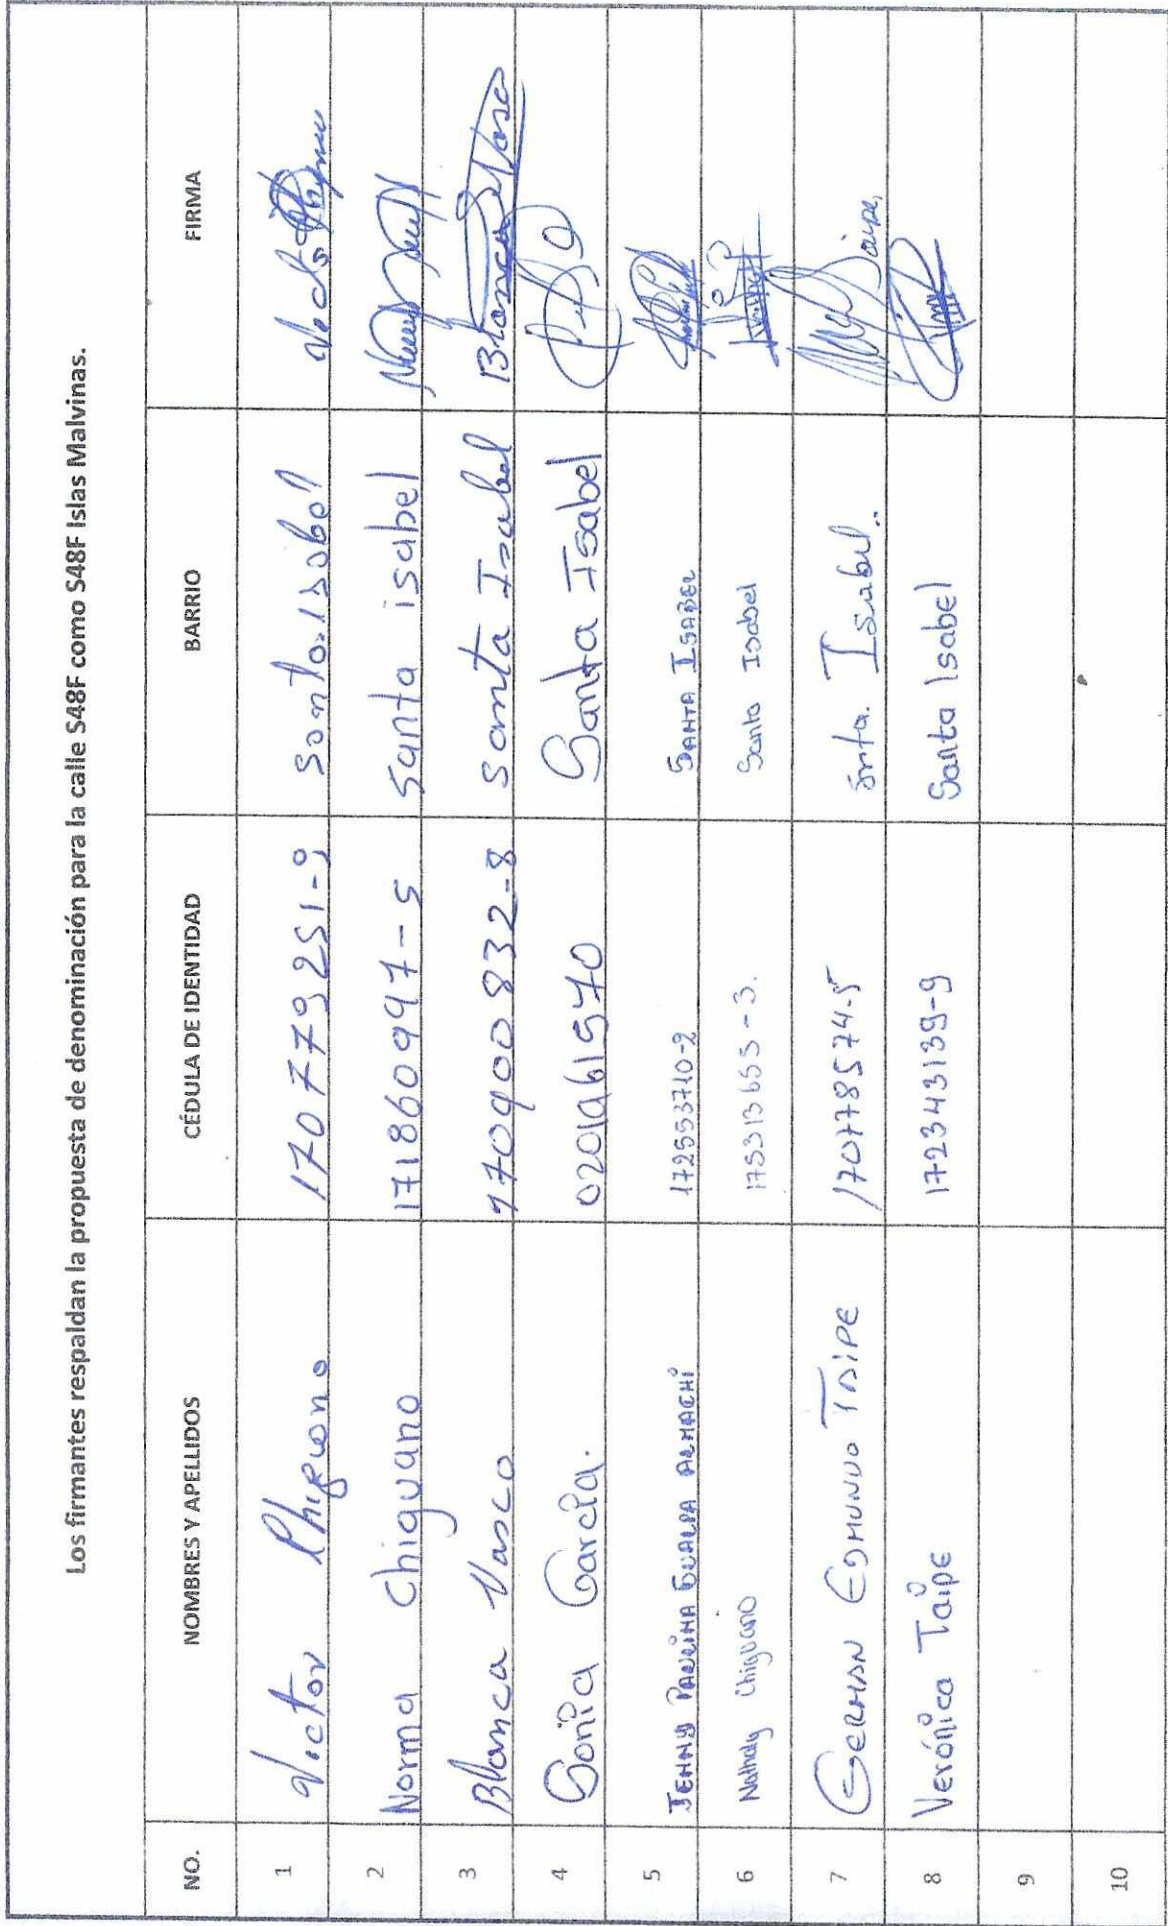 Los firmantes respaldan la propuesta de denominación para la calle S48F como S48F Islas Malvinas.
NO. NOMBRES Y APELLIDOS CÉDULA DE IDENTIDAD BARRIO FIRMA
1 Victor 170779251-9 Santa Isabel
2 Norma Chiguano 171860997-5 Santa isabel
3 Blanca Vasco 170900832-8 Santa Isabel Blanca Vasco
4 Sonia Garcia. 0201961570 Santa Isabel
5 JENNY PAULINA GUALPA ALMACHI 172553710-2 SANTA ISABEL
6 Nathaly Chiguano 175313653-3. Santa Isabel
7 GERMAN EDMUNDO TAIPE 170778574-5 Snta. Isabel.. Taipe
8 Verónica Taipe 172343139-9 Santa Isabel
9
10